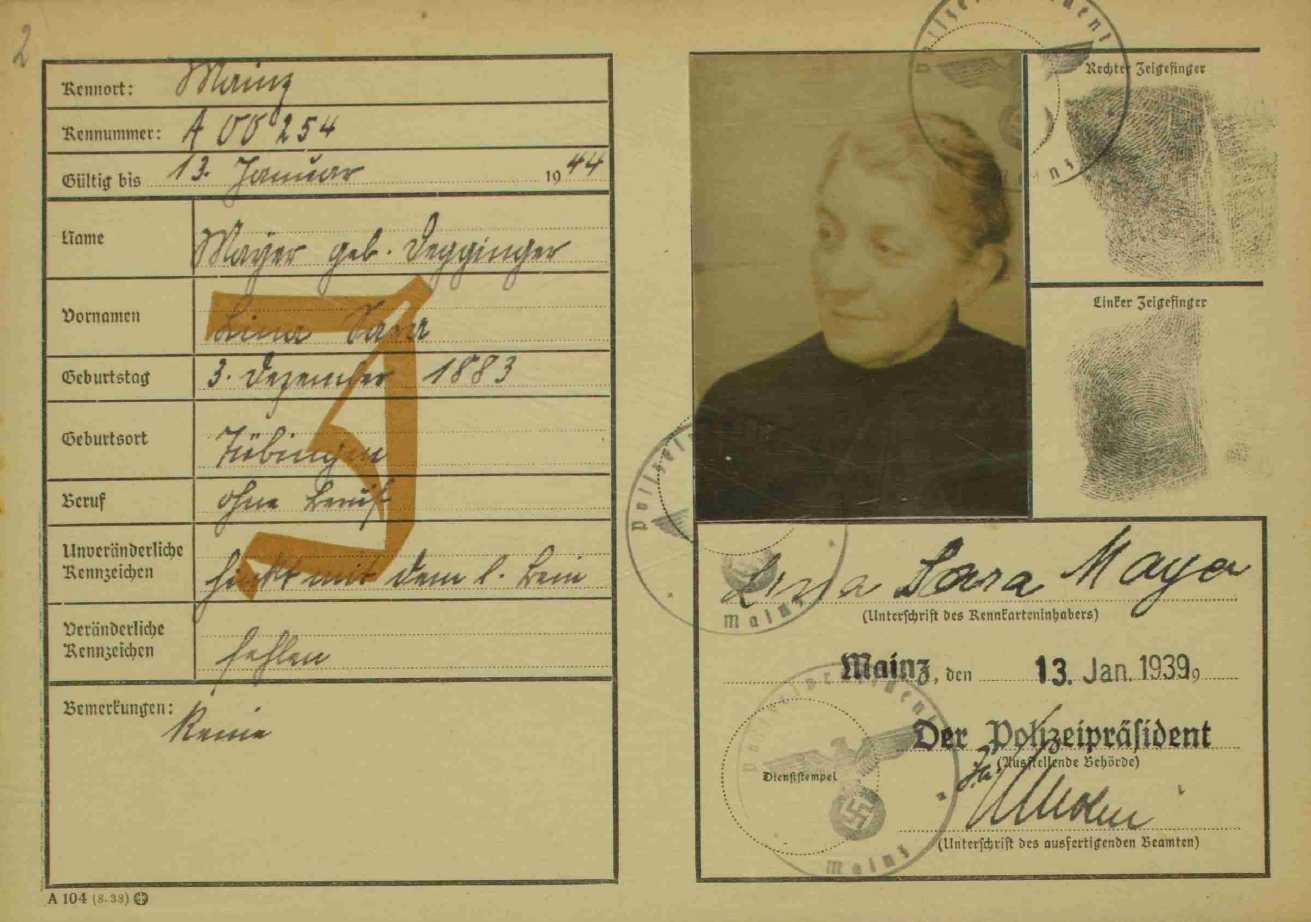 2
Kennort: Mainz
Kennummer: A 00254
Gültig bis 13. Januar 1944
Name Mayer geb. Degginger
Vornamen Lina Sara
Geburtstag 3. Dezember 1883
Geburtsort Tübingen
Beruf ohne Beruf
Unveränderliche Kennzeichen hinkt mit dem l. Bein
Veränderliche Kennzeichen fehlen
Bemerkungen: Keine
J
A 104 (8. 38)
Polizeipräsident
Mainz
Rechter Zeigefinger
Linker Zeigefinger
Polizei
Mainz
Lina Sara Mayer
(Unterschrift des Kennkarteninhabers)
Mainz, den 13. Jan. 1939
Der Polizeipräsident
(Ausstellende Behörde)
Polizeipräsident
Dienststempel
Mainz
(Unterschrift des ausfertigenden Beamten)